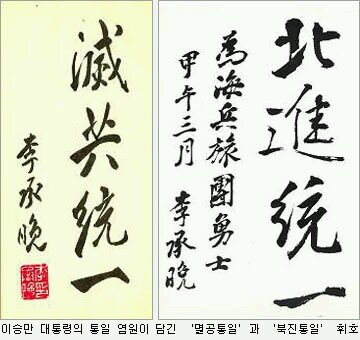 滅共統一
李承晩
北進統一
為海兵旅團勇士
甲午三月 李承晩
이승만 대통령의 통일 염원이 담긴 '멸공통일' 과 '북진통일' 휘호